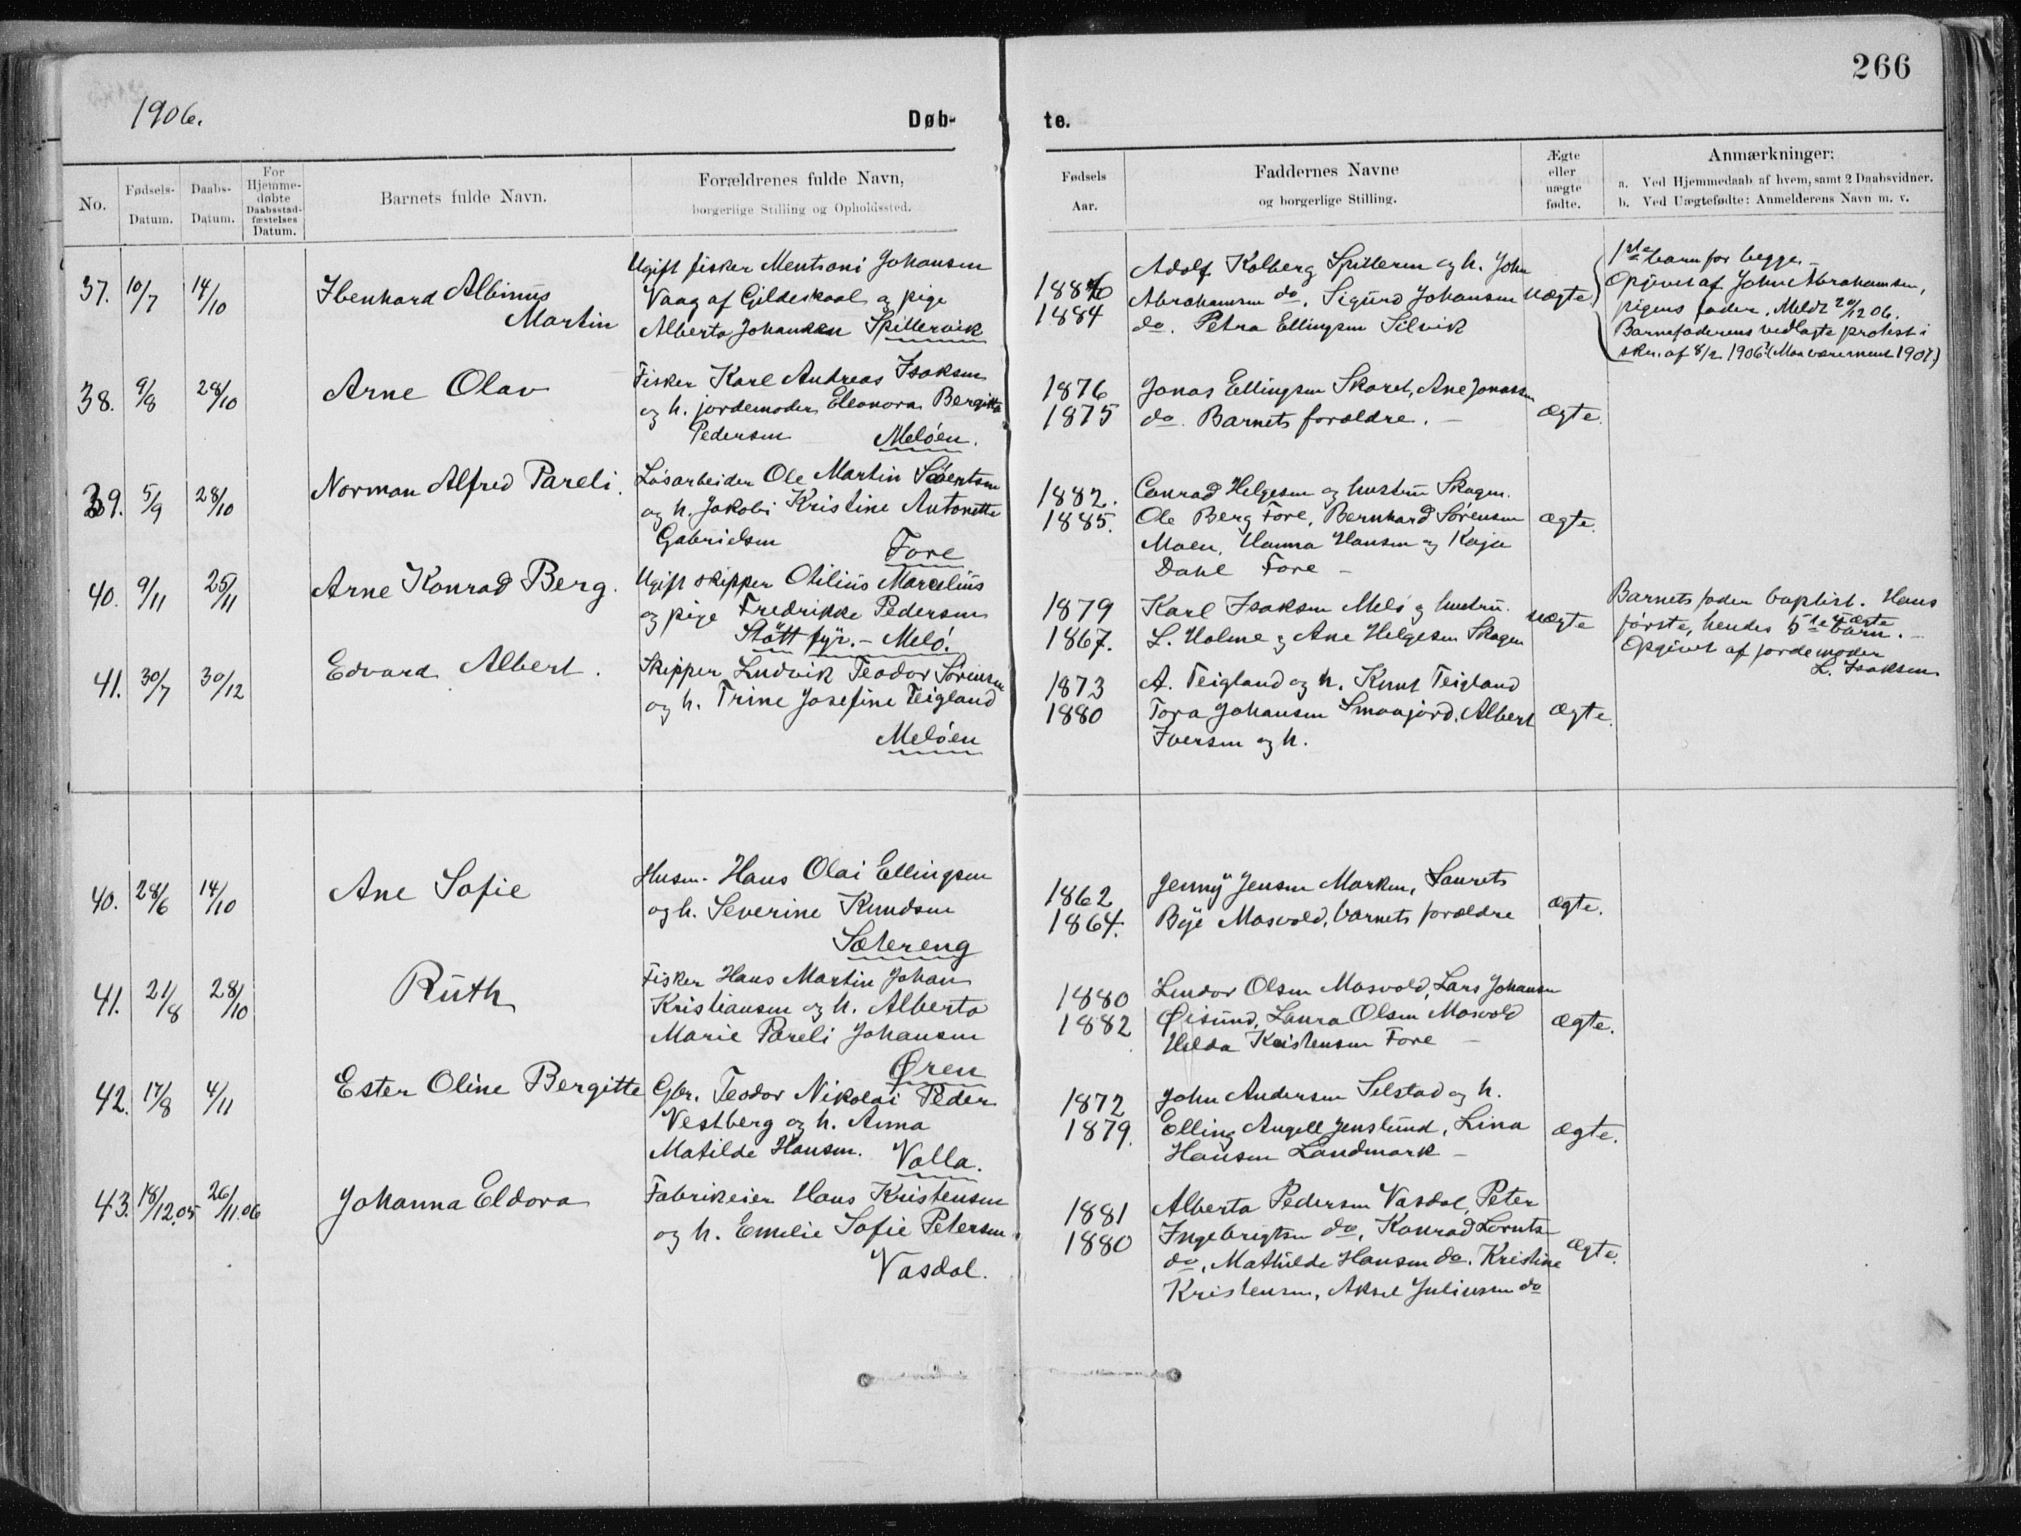 266
1906.
Døb-
te.
No.
Fødsels-
Datum.
Daabs-
Datum.
For
Hjemme-
døbte
Daabsstad-
fæstelses
Datum.
Barnets fulde Navn.
Forældrenes fulde Navn,
borgerlige Stilling og Opholdssted.
Fødsels
Aar.
Faddernes Navne
og borgerlige Stilling.
Ægte
eller
uægte
fødte.
Anmærkninger:
a. Ved Hjemmedaab af hvem, samt 2 Daabsvidner.
b. Ved Uægtefødte: Anmelderens Navn m. v.
37. 10/7 14/10
Ibenhard Albinus
Martin
Ugift fisker Mentsoni Johansen
Vaag af Gildeskaal og pige
Alberta Johansen Spillervik
1886
1884
Adolf Kolberg Spilleren og h. John
Abrahamsen do. Sigurd Johansen
do. Petra Ellingsen Selvik
uægte
1ste barn for begge.
Opgivet af John Abrahamsen,
pigens fader. Meldt 20/12 06.
Barnefaderens vedlagte protest i
skr. af 8/2 1906! (Maa være ment 1907)
38. 9/8 28/10
Arne Olav
Fisker Karl Andreas Isaksen
og h. jordemoder Eleonora Bergitta
Pedersen Meløen.
1876
1875
Jonas Ellingsen Skaret, Ane Jonassen
do. Barnets forældre. -
ægte.
39. 5/9 28/10
Norman Alfred Pareli.
Løsarbeider Ole Martin Sivertsen
og h. Jakobi Kristine Antonette
Gabrielsen Fore
1882.
1885.
Conrad Helgesen og hustru Skagen.
Ole Berg Fore, Bernhard Sørensen
Moen, Hanna Hansen og Kaja
Dahl Fore -
ægte.
40. 9/11 25/11
Arne Konrad Berg.
Ugift skipper Otilius Marcelius
og pige Fredrikke Pedersen
Støtt fyr. - Melø.
1879
1867.
Karl Isaksen Melø og hustru.
L. Holme og Ane Helgesen Skagen
uægte
Barnets fader baptist. Hans
første, hendes 5te uægte barn. -
Opgivet af jordemoder
L. Isaksen
41. 30/7 30/12
Edvard Albert.
Skipper Ludvik Teodor Sørensen
og h. Trine Josefine Teigland
Meløen
1873
1880
A. Teigland og h. Knut Teigland
Tora Johansen Smaajord, Albert
Iversen og h.
ægte.
40. 28/6 14/10
Ane Sofie
Husm. Hans Olai Ellingsen
og h. Severine Knudsen
Sætereng
1862
1864.
Jenny Jensen Marken, Laurets
Bye Mosvold, barnets forældre
ægte.
41. 21/8 28/10
Ruth
Fisker Hans Martin Johan
Kristiansen og h. Alberta
Marie Pareli Johansen
Øren
1880
1882
Lindor Olsen Mosvold, Lars Johansen
Øisund, Laura Olsen Mosvold
Hilda Kristensen Fore -
ægte.
42. 17/8 4/11
Ester Oline Bergitte
Gbr. Teodor Nikolai Peder
Vestberg og h. Anna
Matilde Hansen. Valla.
1872
1879.
John Andersen Selstad og h.
Elling Angell Jenslund, Lina
Hansen Landmark -
ægte.
43. 18/12.05 26/11.06
Johanna Eldora
Fabrikeier Hans Kristensen
og h. Emelie Sofie Petersen.
Vasdal.
1881
1880
Alberta Pedersen Vasdal, Peter
Ingebrigtsen do, Konrad Lorntsen
do, Mathilde Hansen do. Kristine
Kristensen, Aksel Juliussen do
ægte.